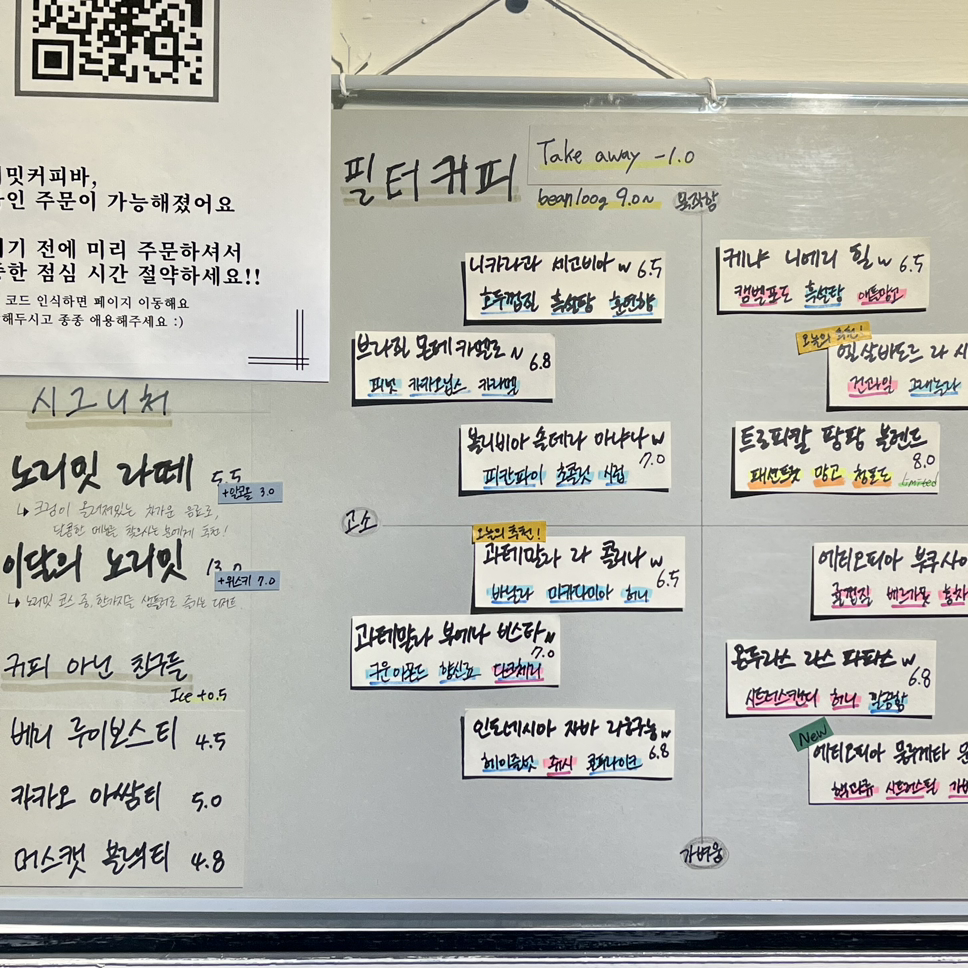 밋커피바,
인 주문이 가능해졌어요
기 전에 미리 주문하셔서
한 점심 시간 절약하세요!!
코드 인식하면 페이지 이동해요
해두시고 종종 애용해주세요 :)
시그니처
노리밋 라떼 5.5
+알코올 3.0
↳ 크림이 올려져있는 차가운 음료로,
달콤한 메뉴를 찾으시는 분에게 추천!
이달의 노리밋 13.0
+위스키 7.0
↳ 노리밋 코스 중, 한가지를 샘플러로 즐기는 디저트
커피 아닌 친구들
Ice +0.5
베리 루이보스티 4.5
카카오 아쌈티 5.0
머스캣 블랙티 4.8
필터커피
Take away -1.0
bean 100g 9.0~
묵직함
니카라과 세고비아 w 6.5
호두껍질 흑설탕 훈연향
브라질 몬테 카멜로 N 6.8
피넛 카카오닙스 카라멜
볼리비아 손데라 마냐나 w 7.0
피칸파이 초콜릿 시럽
고소
오늘의 추천!
과테말라 라 콜리나 w 6.5
바닐라 마카다미아 허니
과테말라 부에나 비스타 N 7.0
구운아몬드 향신료 다크체리
인도네시아 자바 라웅구눙 w 6.8
헤이즐넛 쥬시 콘파나이크
케냐 니에리 힐 w 6.5
캠벨포도 흑설탕 애플망고
오늘의 추천!
엘살바도르 라 시
건과일 그래놀라
트로피칼 팡팡 블렌드 8.0
패션프룻 망고 청포도 limited
에티오피아 부쿠 사이
귤껍질 베르가못 홍차
온두라스 라스 파파스 w 6.8
시트러스캔디 허니 깔끔함
New
에티오피아 물루게타
핵과류 시트러스틱
가벼움